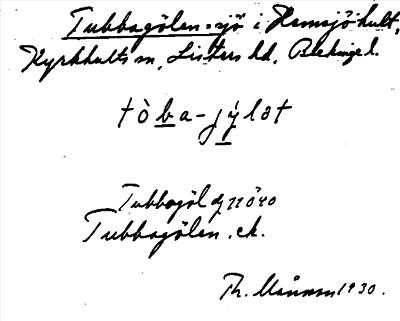 Tubbagölen = sjö i Hemsjöhult,
Kyrkhults sn, Listers hd, Blekinge l.
tòba-jýlət
Tubbagöl
Tubbagölen . ek.
1930.